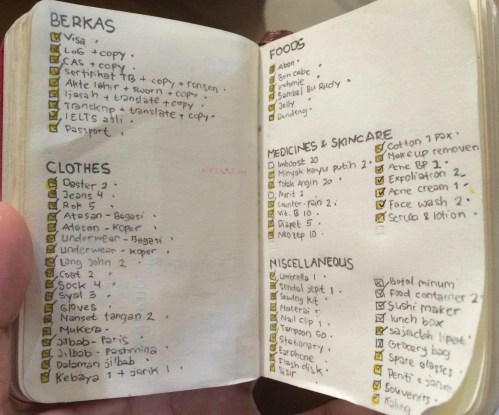 BERKAS
Visa
LoG + copy
CAS + copy
Sertifikat TB + copy + ronsen
Akte lahir + sworn + copy
Ijasah + translate + copy
Transkrip + translate + copy
IELTS asli
Passport
CLOTHES
Daster 2
Jeans 4
Rok 5
Atasan - Bagasi
Atasan - Koper
Underwear - Bagasi
Underwear - Koper
Long John 2
Coat 2
Sock 4
Syal 3
Gloves
Manset tangan 2
Mukena
Jilbab - Paris
Jilbab - Pashmina
Dalaman jilbab
Kebaya 1 + jarik 1
FOODS
Abon
Bon cabe
Indomie
Sambal Bu Rudy
Jelly
Dendeng
MEDICINES & SKINCARE
Imboost 20
Minyak kayu putih 2
Tolak Angin 20
Norit 2
Counter-pain 2
Vit. B 10
Diapet 5
Neozep 10
Cotton 1 pax
Make up remover
Acne BP 1
Exfoliation 2
Acne cream 1
Face wash 2
Scrub & lotion
MISCELLANEOUS
Umbrella 1
Sendal jepit 1
Sewing kit
Materai
Nail clip 1
Tampoon 50
Stationary
Earphone
Flash disk
Sisir
Botol minum
Food container 2
Sushi maker
Lunch box
Sajadah lipat
Grocery bag
Spare glasses
Peniti + jarum
Souvenirs